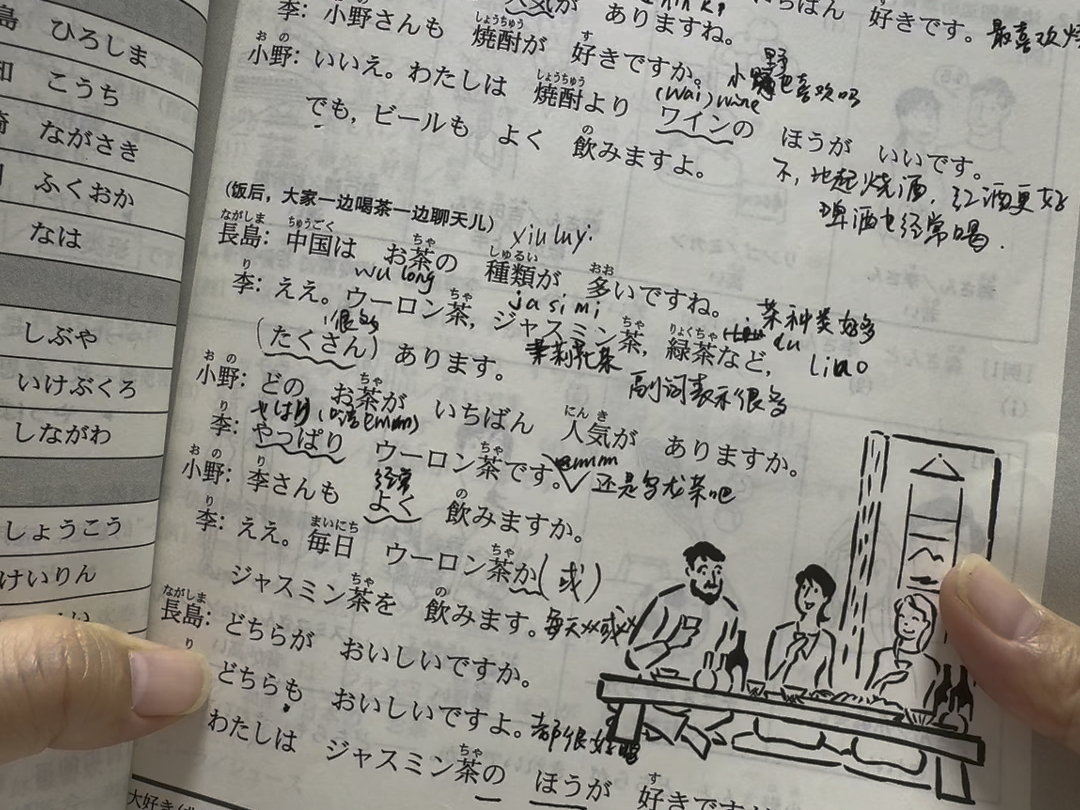 ひろしま
こうち
ながさき
ふくおか
なは
しぶや
いけぶくろ
しながわ
しょうこう
けいりん
人気が ありますね。
いちばん 好きです。 最喜欢烧
李: 小野さんも 焼酎が 好きですか。
小野也喜欢吗
小野: いいえ。わたしは 焼酎より ワインの ほうが いいです。
(wai) wine
でも, ビールも よく 飲みますよ。
不, 比起烧酒, 红酒更好
啤酒也经常喝.
(饭后，大家一边喝茶一边聊天儿)
xiu luyi
長島: 中国は お茶の 種類が 多いですね。
茶种类好多
wu long
jasimi
李: ええ。ウーロン茶, ジャスミン茶, 緑茶など,
很多
茉莉花茶
liao
(たくさん) あります。
副词表示很多
小野: どの お茶が いちばん 人気が ありますか。
やはり
李: やっぱり ウーロン茶です。
emmm
还是乌龙茶吧
小野: 李さんも よく 飲みますか。
经常
李: ええ。毎日 ウーロン茶か(或)
ジャスミン茶を 飲みます。
每天xx或xx
長島: どちらが おいしいですか。
李: どちらも おいしいですよ。
都很好喝
わたしは ジャスミン茶の ほうが 好きです
大好き